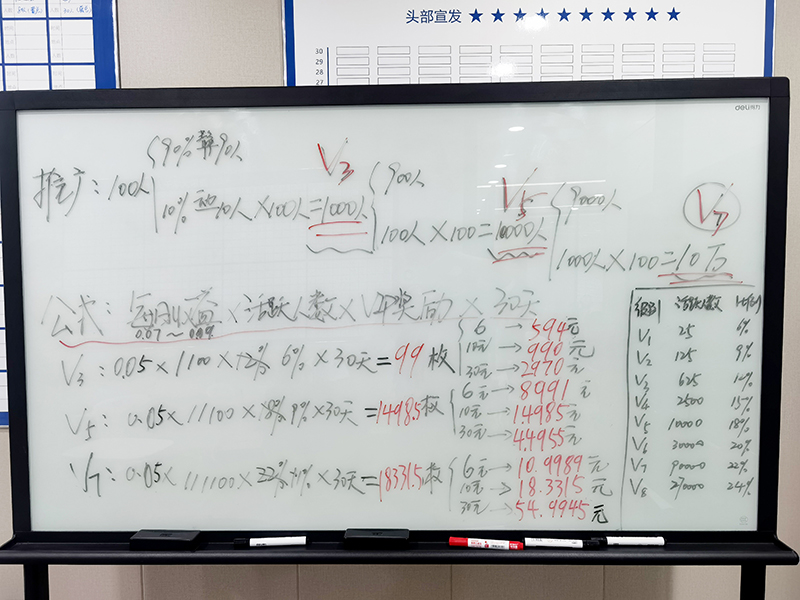 头部宣发 ★★★★★★★★★★
30
29
28
27
deli 得力
90% 静 90人
推广：100人
10% 动 10人×100人=1000人
V3
900人
100人×100=10000人
V5
9000人
1000人×100=10万
V7
公式：每日收益×活跃人数×VIP奖励×30天
0.07～0.09
V3：0.05×1100×12% 6%×30天=99枚
6→594元
10元→990元
30元→2970元
V5：0.05×11100×18% 9%×30天=1498.5枚
6元→8991元
10元→14985元
30元→44955元
V7：0.05×111100×22% 11%×30天=18331.5枚
6元→10.9989元
10元→18.3315元
30元→54.9945元
级别 活跃人数
V1 25 6%
V2 125 9%
V3 625 12%
V4 2500 15%
V5 10000 18%
V6 30000 20%
V7 90000 22%
V8 270000 24%